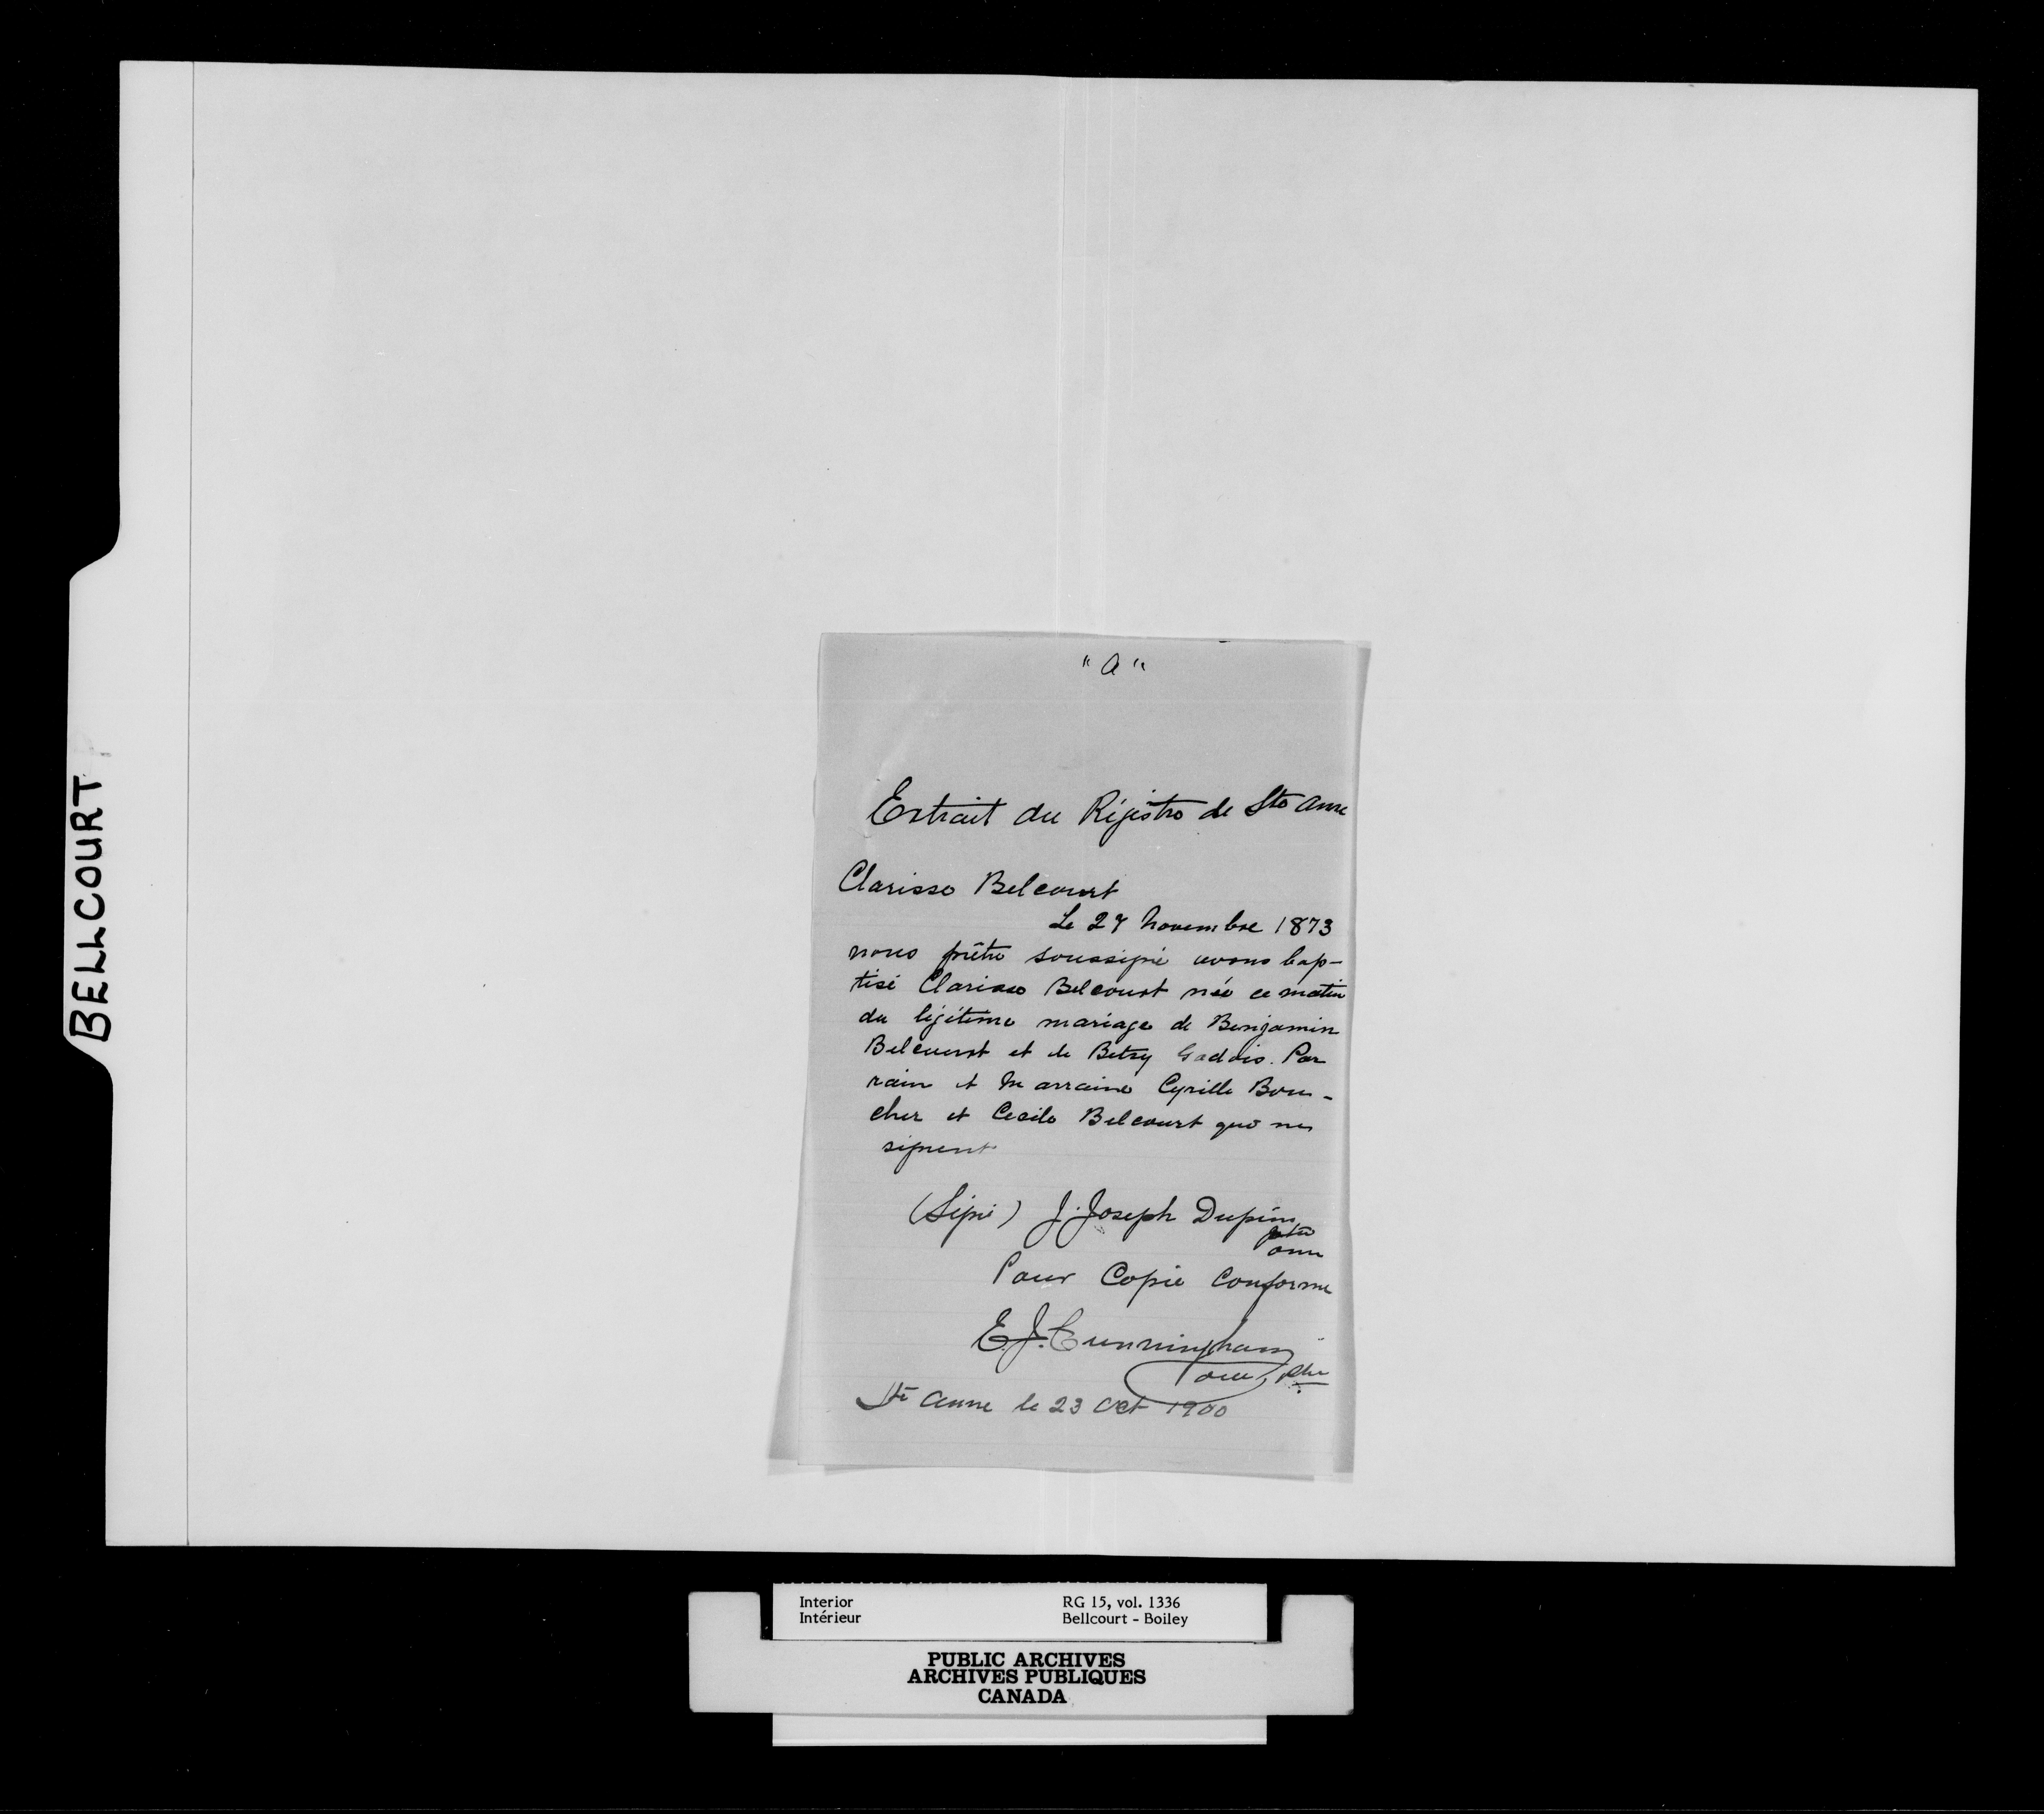 BELLCOURT
" a "
Extrait du Régistre de Ste Anne
Clarisse Belcourt
Le 27 Novembre 1873
nous prêtre soussigné avons bap-
tisé Clarisse Belcourt née ce matin
du légitime mariage de Benjamin
Belcourt et de Betsy Gaddis. Par
rain et Marraine Cyrille Bou-
cher et Cecile Belcourt qui ne
signent
(Signé) J. Joseph Dupin
ptre
omi
Pour Copie Conforme
E. J. Cunningham
omi, ptre
Ste Anne le 23 Oct 1900
Interior
Intérieur
RG 15, vol. 1336
Bellcourt - Boiley
PUBLIC ARCHIVES
ARCHIVES PUBLIQUES
CANADA